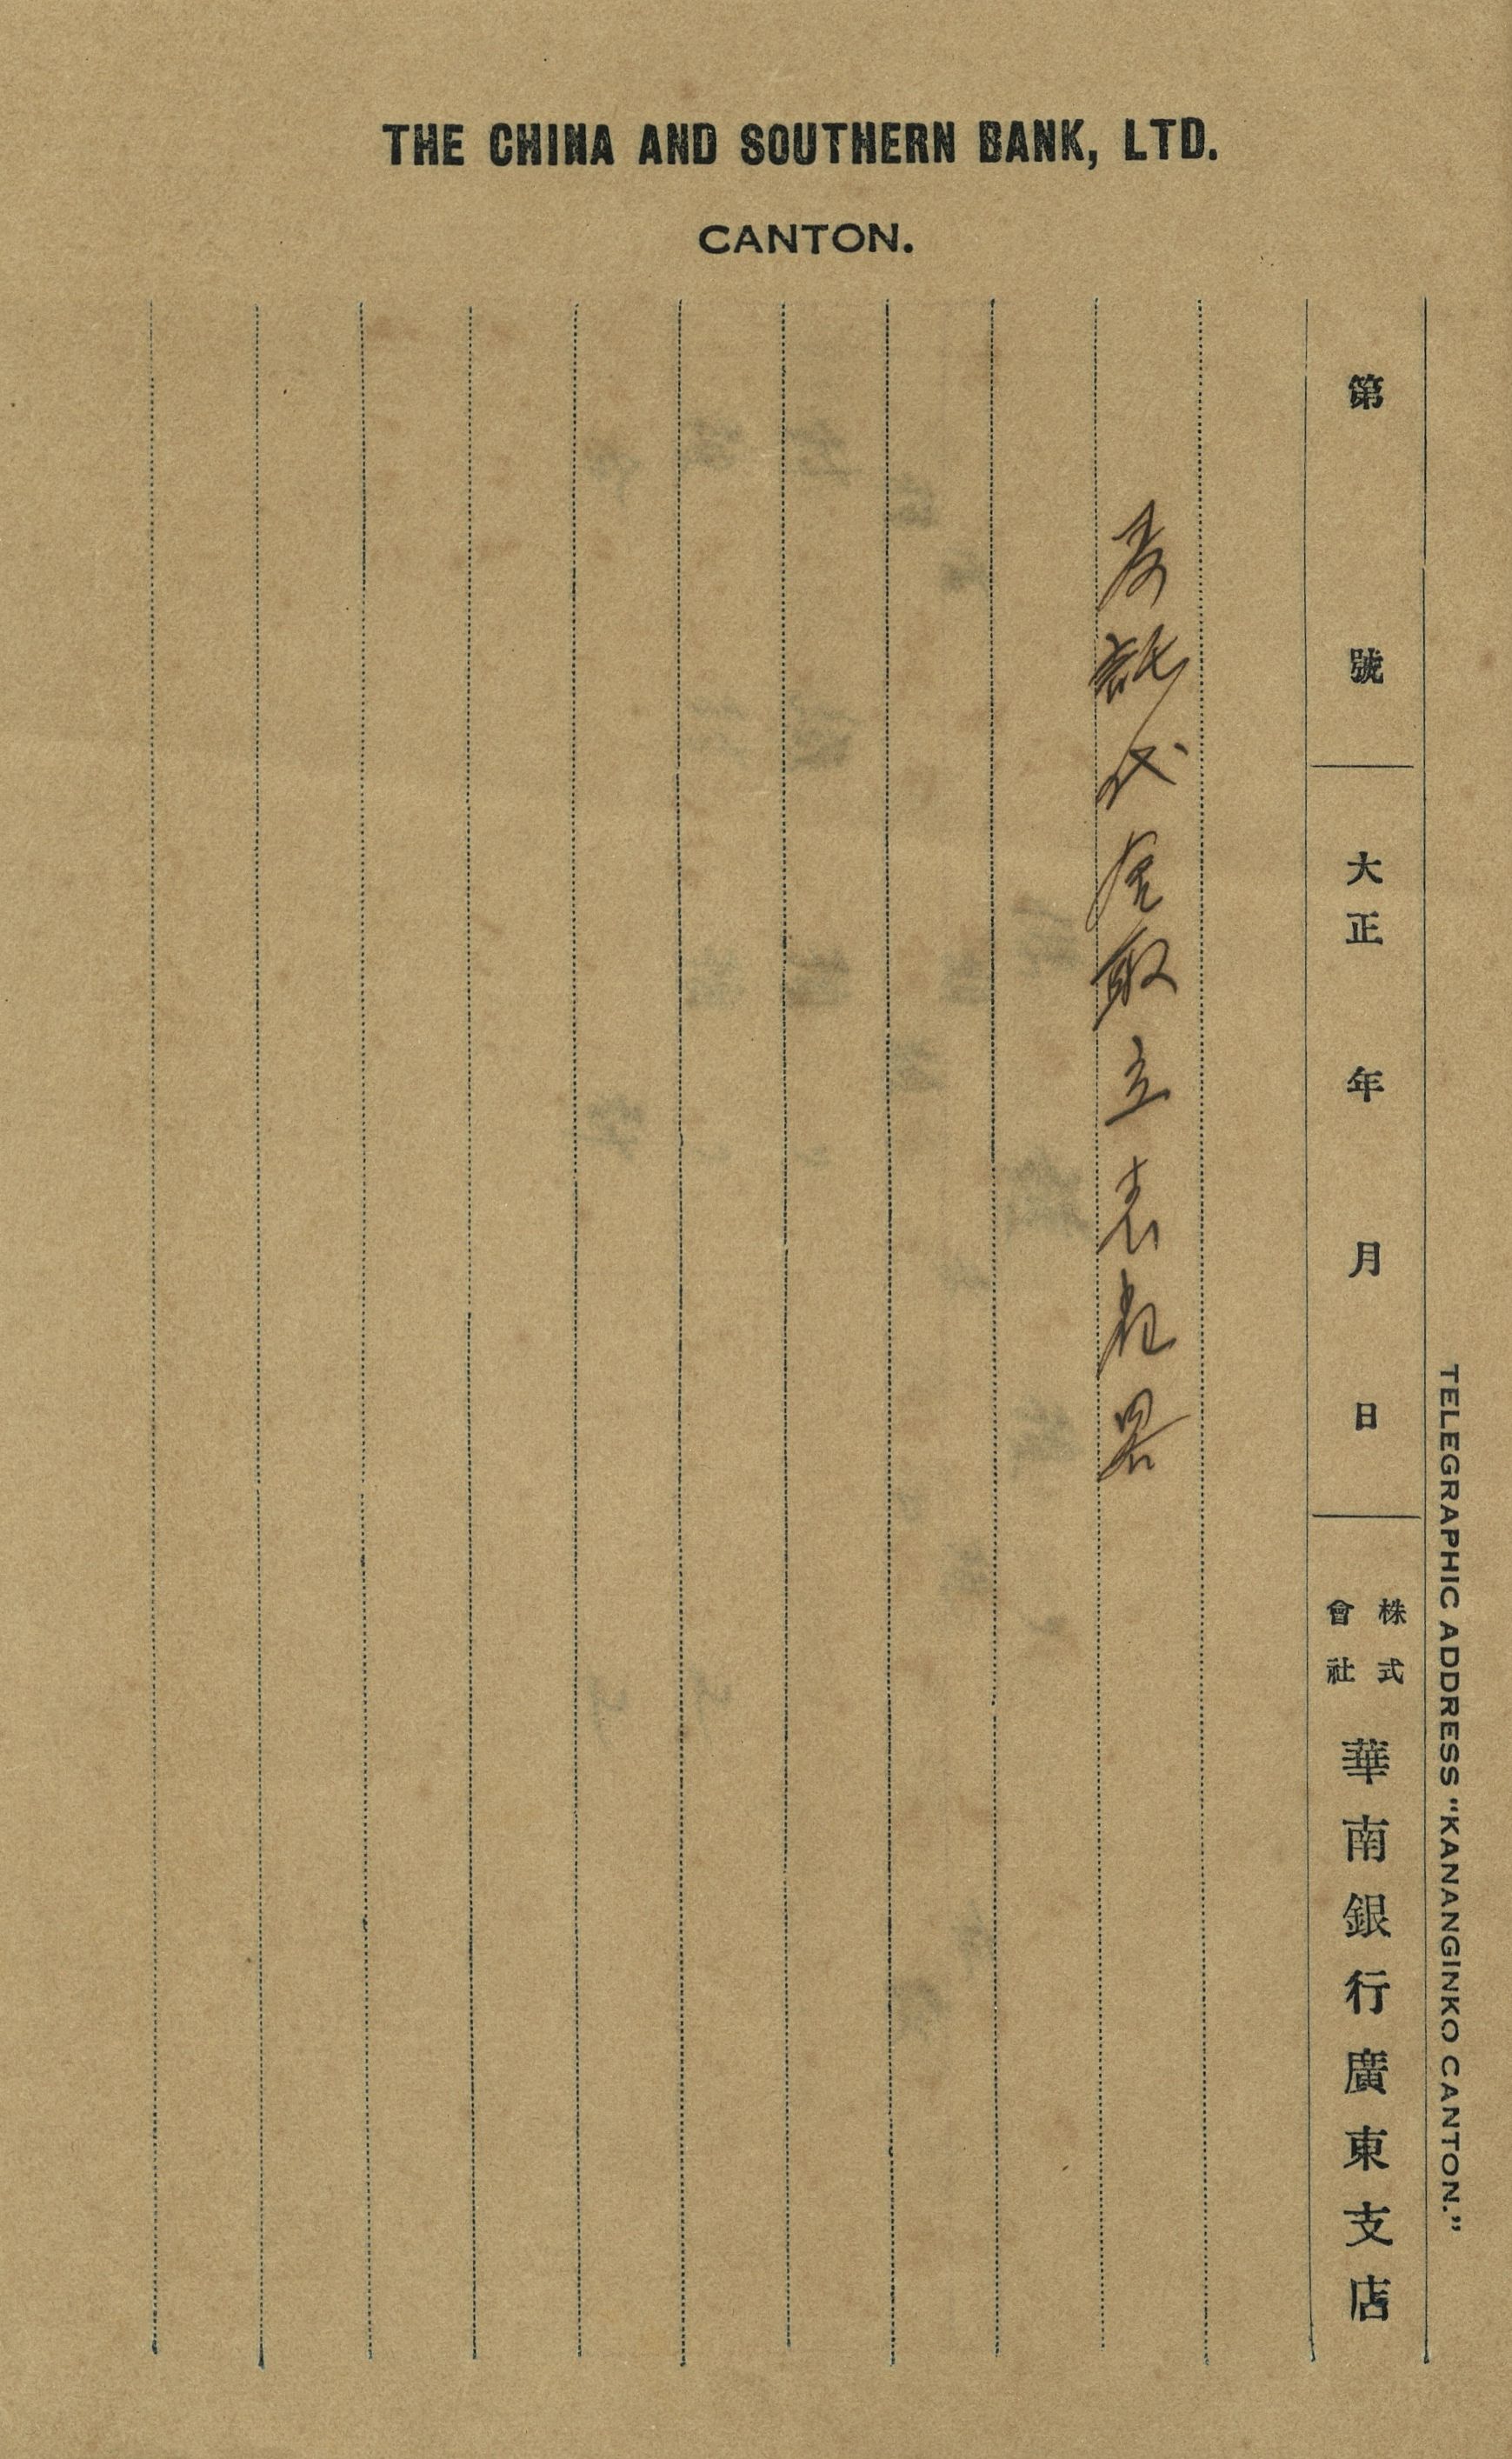 THE CHINA AND SOUTHERN BANK, LTD.
CANTON.
TELEGRAPHIC ADDRESS "KANANGINKO CANTON."
第 號 大正 年 月 日 株式會社 華南銀行廣東支店
委託代金取立表